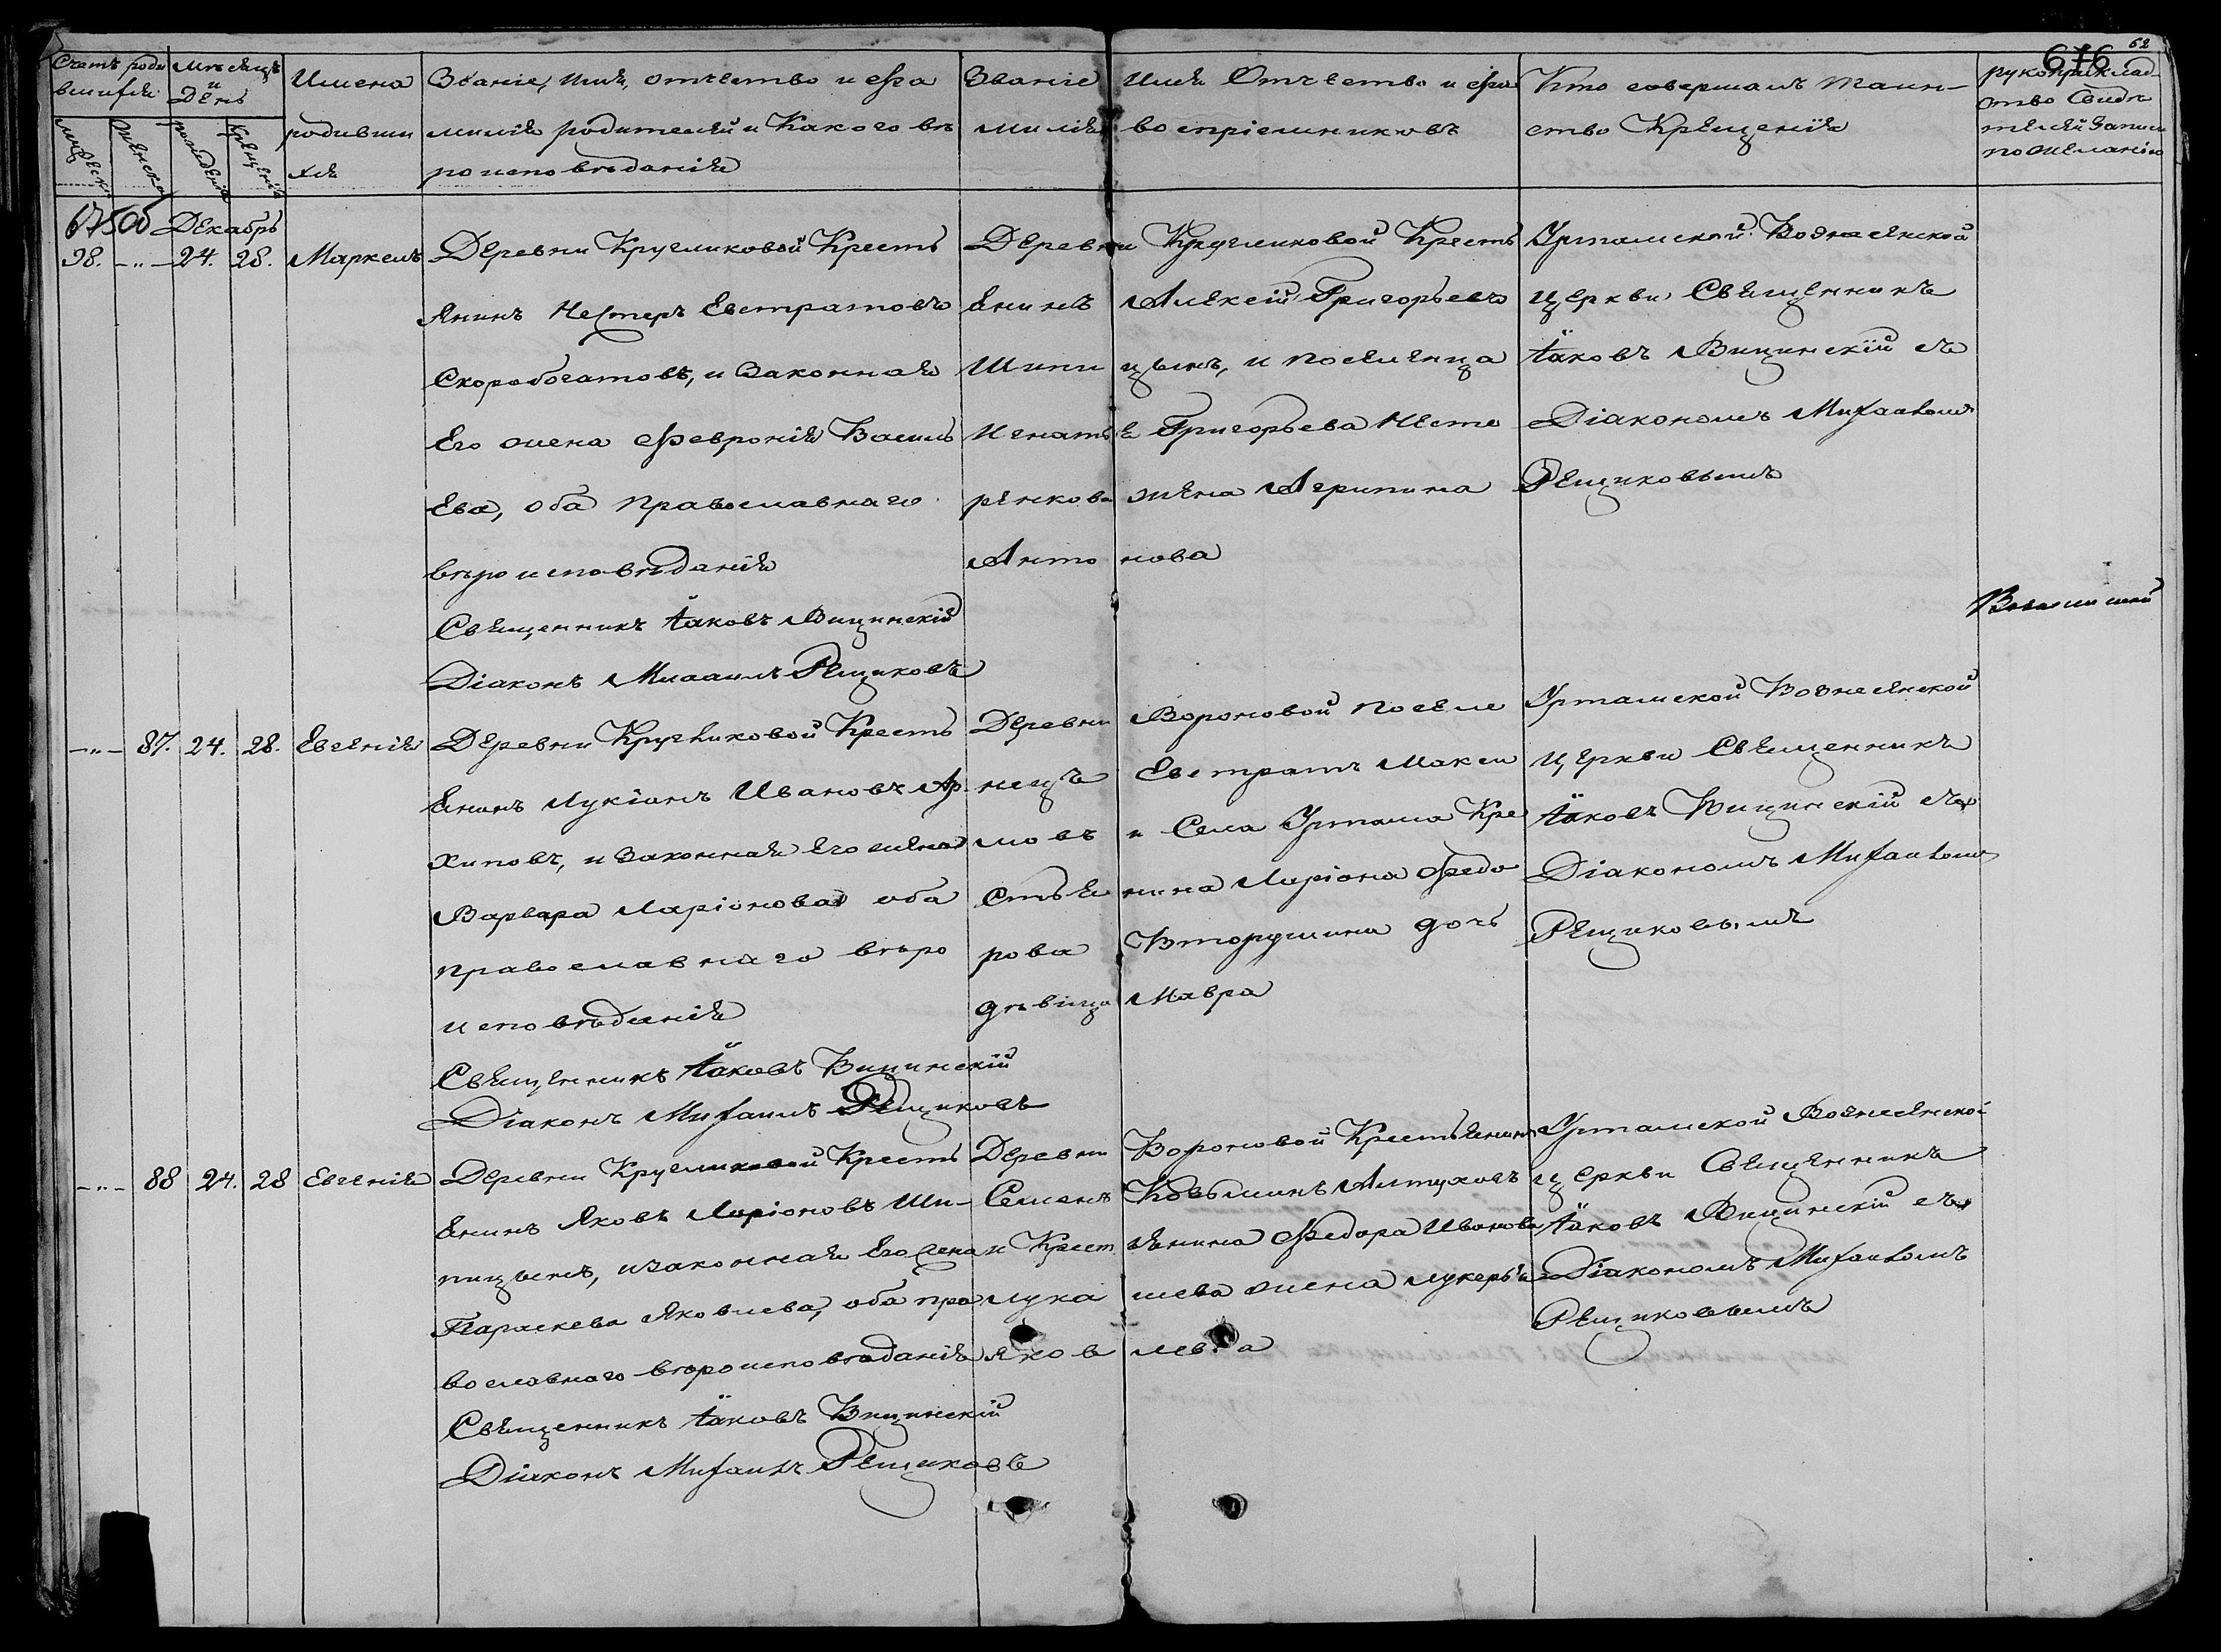 676 62
Счетъ роди
вшихся
Мѣсяцъ
и
День
мужеска
женска
рожденія
крещенія
Имена
родивши
хся
Званіе, имя, отчество и фа
милія родителей и Какого вѣ
роисповѣданія
Званіе имя Отчество и фа
милія воспріемниковъ
Кто совершалъ Таин-
ство Крещенія
рукоприклад
ство Свидѣ
телей Записи
по желанію
Декабрь
98. -"- 24. 28. Маркелъ
Деревни Кругликовой Кресть
янинъ Нестеръ Евстратовъ
Скоробогатовъ, и Законная
Его жена Феронія Василь
Ева, оба Православнаго
вѣроисповѣданія
Священникъ Іаковъ Вицинскій
Діаконъ Михаилъ Рещиковъ
Деревни Кругликовой Кресть
Енинъ Алексій Григорьевъ
Шипицынъ, и поселенца
Игнатья Григорьева Несте
ренкова жена Агрипина
Антонова
Уртамской Вознесенской
церкви Священникъ
Іаковъ Вицинскій съ
Діакономъ Михаиломъ
Рещиковымъ
-"- 87. 24. 28. Евгенія
Деревни Кругликовой Кресть
Енинъ Лукіанъ Ивановъ Ар
хиповъ, и Законная Его жена
Варвара Ларіонова оба
православнаго вѣро
исповѣданія
Священникъ Іаковъ Вицинскій
Діаконъ Михаилъ Рещиковъ
Деревни Вороновой Поселе
нецъ Евстратъ Макси
мовъ и Села Уртама Кре
стьянина Ларіона Федо
рова Вторушина дочь
дѣвица Мавра
Уртамской Вознесенской
церкви Священникъ
Іаковъ Вицинскій съ
Діакономъ Михаиломъ
Рещиковымъ
-"- 88 24. 28 Евгенія
Деревни Кругликовой Кресть
Енинъ Яковъ Ларіоновъ Ши-
пицынъ, и законная Его жена
Параскева Яковлева, оба пра
вославнаго вѣроисповѣданія
Священникъ Іаковъ Вицинскій
Діаконъ Михаилъ Рещиковъ
Деревни Вороновой Крестьянинъ
Семенъ Козьминъ Алтуховъ
и Крестьянина Федора Иванова
Лукашева жена Лукерья
Яковлева
Уртамской Вознесенской
церкви Священникъ
Іаковъ Вицинскій съ
Діакономъ Михаиломъ
Рещиковымъ